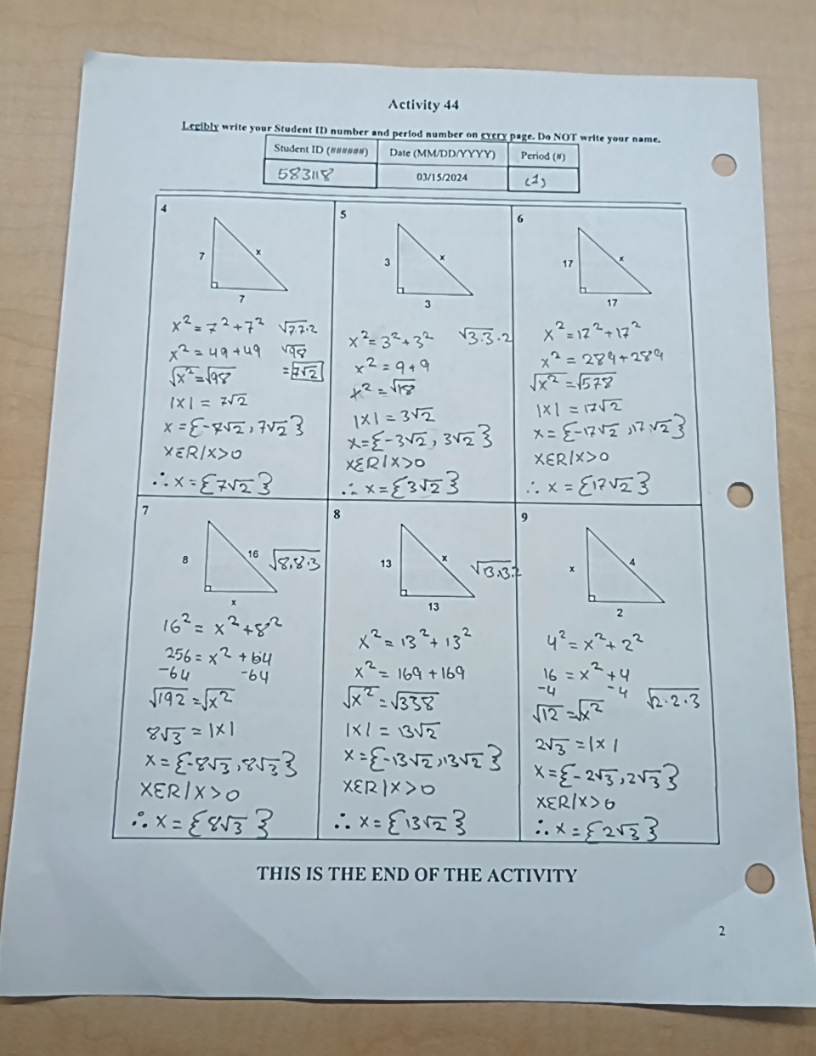 Activity 44
Legibly write your Student ID number and period number on every page. Do NOT write your name.
Student ID (######) Date (MM/DD/YYYY) Period (#)
583118 03/15/2024 (1)
4
7
x
7
x² = 7² + 7² √7·7·2
x² = 49 + 49 √98
√x² = √98 = 7√2
|x| = 7√2
x = {-7√2, 7√2}
XER/X>0
∴ x = {7√2}
5
3
x
3
x² = 3² + 3² √3·3·2
x² = 9 + 9
x² = √18
|x| = 3√2
x = {-3√2, 3√2}
XER/X>0
∴ x = {3√2}
6
17
x
17
x² = 17² + 17²
x² = 289 + 289
√x² = √578
|x| = 17√2
x = {-17√2, 17√2}
XER/X>0
∴ x = {17√2}
7
8
16 √8·8·3
x
16² = x² + 8²
256 = x² + 64
-64 -64
√192 = √x²
8√3 = |x|
x = {-8√3, 8√3}
XER/X>0
∴ x = {8√3}
8
13
x
13
x² = 13² + 13²
x² = 169 + 169
√x² = √338
|x| = 13√2
x = {-13√2, 13√2}
XER/X>0
∴ x = {13√2}
9
x
4
2
4² = x² + 2²
16 = x² + 4
-4 -4 √2·2·3
√12 = √x²
2√3 = |x|
x = {-2√3, 2√3}
XER/X>0
∴ x = {2√3}
THIS IS THE END OF THE ACTIVITY
2